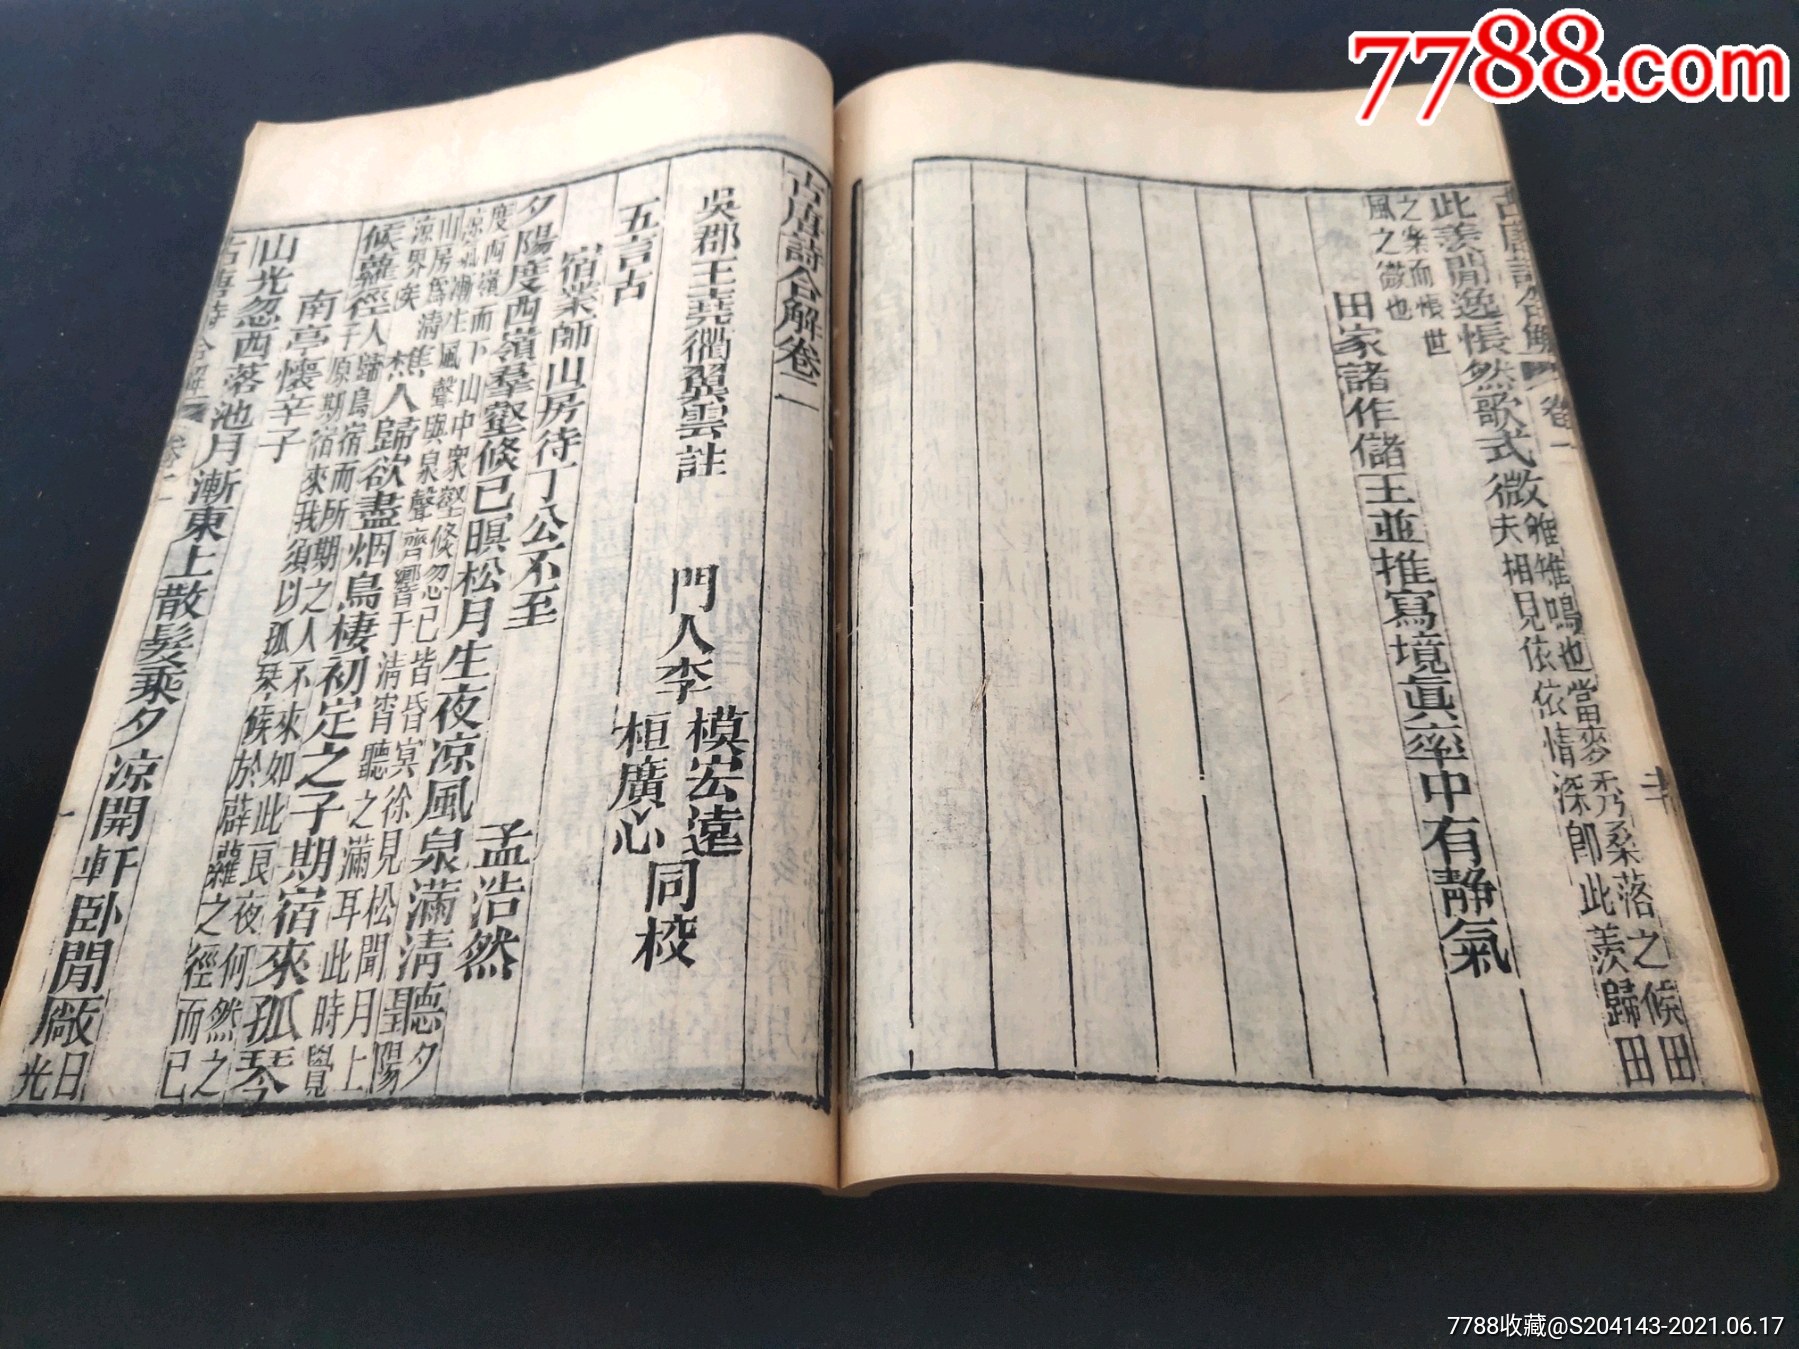 7788.com
古唐詩合解 卷一
此羨閒逸悵然歌式微雉雊雉鳴也當麥秀桑落之候田
夫相見依依情深即此羨歸田
之樂而悵世
風之微也
田家諸作儲王並推寫境真率中有靜氣
古唐詩合解卷二
吳郡王堯衢翼雲註 門人李 模宏遠 桓廣心 同校
五言古
宿業師山房待丁公不至 孟浩然
夕陽度西嶺羣壑倏已暝松月生夜凉風泉滿清聽夕陽
度西嶺而下山中衆壑倏忽已皆昏冥徐見松間月上
凉氣漸生風聲與泉聲齊響于清宵聽之滿耳此時覺
山房爲清
凉界矣
樵人歸欲盡烟鳥棲初定之子期宿來孤琴
候蘿徑人歸鳥宿而所期之人不來如此良夜何然之
子原期宿來我須以孤琴候於辟蘿之徑而已
南亭懷辛子
山光忽西落池月漸東上散髮乘夕凉開軒臥閒厰日光
古唐詩合解 卷二
一
7788收藏@S204143-2021.06.17